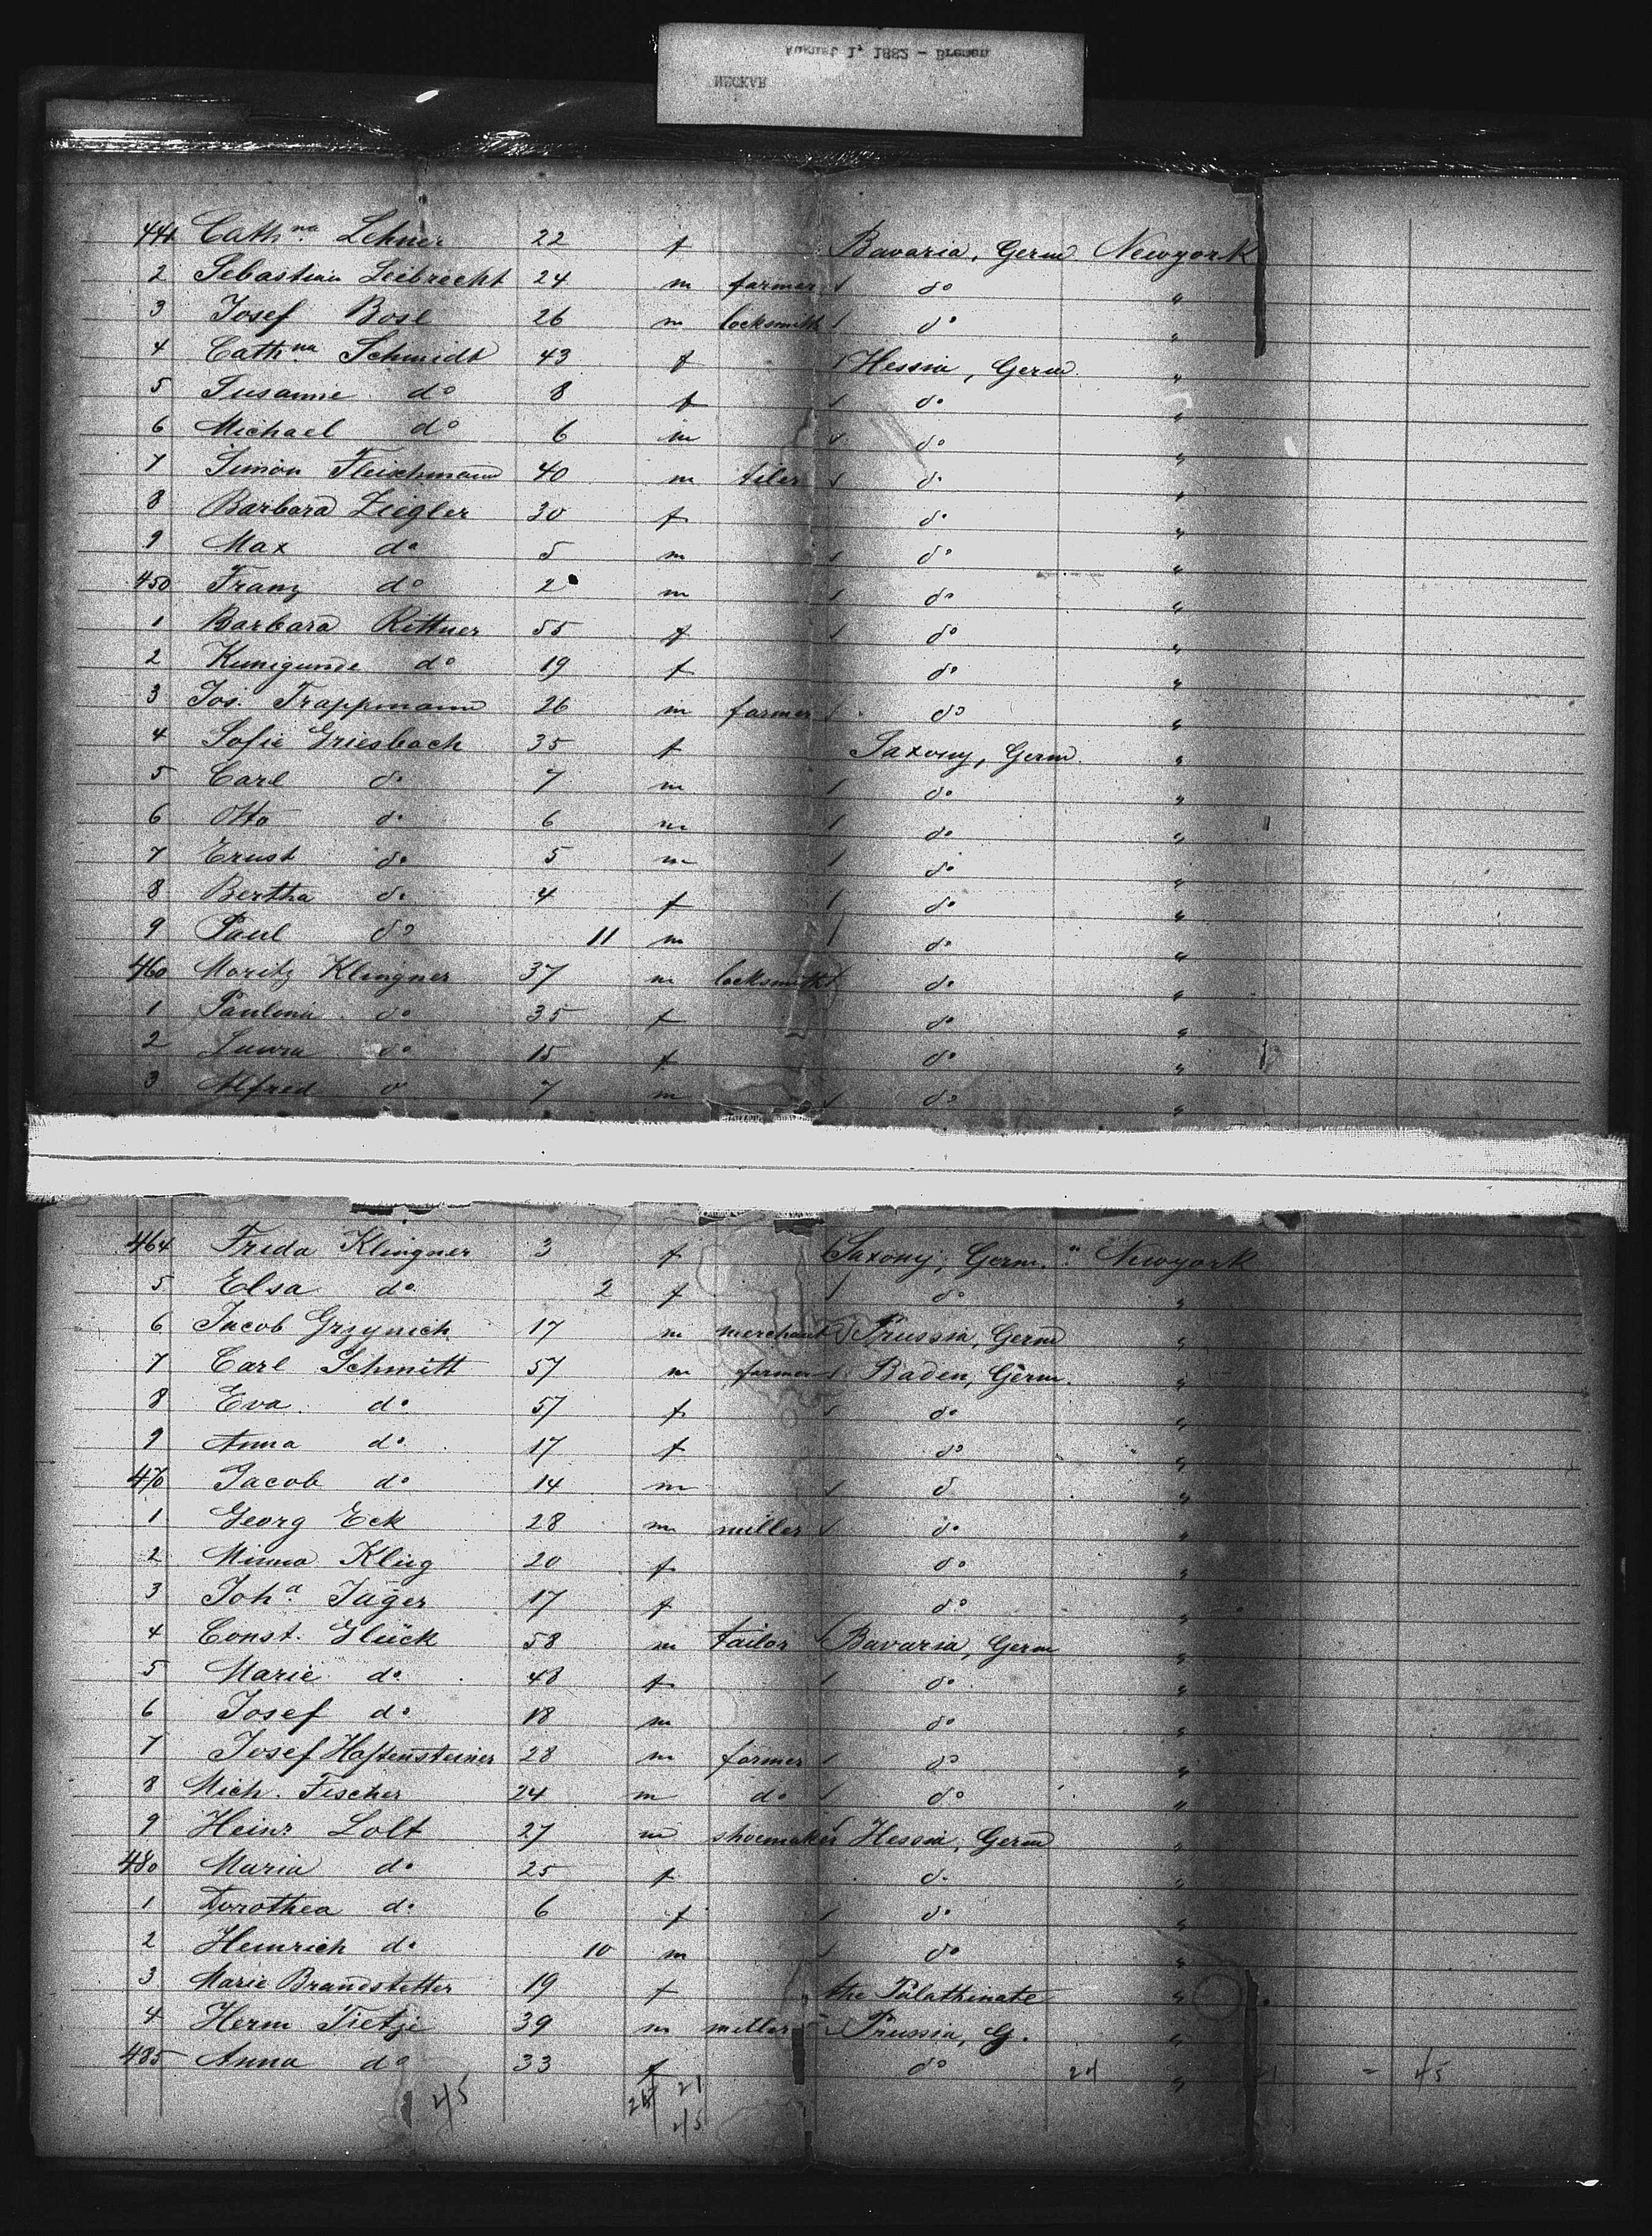 August 1, 1882 - Bremen
NECKAR
441 Cathna. Lehner 22 f Bavaria, Germ Newyork
2 Sebastian Leibrecht 24 m farmer do "
3 Josef Bosl 26 m locksmith do "
4 Cathna Schmidt 43 f Hessia, Germ. "
5 Susanne do 8 f do "
6 Michael do 6 m do "
7 Simon Fleischmann 40 m tiler do "
8 Barbara Ziegler 30 f do "
9 Max do 5 m do "
450 Franz do 2 m do "
1 Barbara Rittner 55 f do "
2 Kunigunde do 19 f do "
3 Jos. Trappmann 26 m farmer do "
4 Sofie Griesbach 35 f Saxony, Germ. "
5 Carl do 7 m do "
6 Otto do 6 m do "
7 Ernst do 5 m do "
8 Bertha do 4 f do "
9 Paul do 11 m do "
460 Moritz Klingner 37 m locksmith do "
1 Paulina do 35 f do "
2 Laura do 15 f do "
3 Alfred do 7 m do "
464 Frida Klingner 3 f Saxony, Germ. Newyork
5 Elsa do 2 f do "
6 Jacob 17 m merchant Prussia, Germ "
7 Carl Schmitt 57 m farmer Baden, Germ. "
8 Eva do 57 f do "
9 Anna do 17 f do "
470 Jacob do 14 m do "
1 Georg Eck 28 m miller do "
2 Minna Klug 20 f do "
3 Joha. Jäger 17 f do "
4 Const. Glück 58 m tailor Bavaria, Germ "
5 Marie do 48 f do "
6 Josef do 18 m do "
7 Josef Haftensteiner 28 m farmer do "
8 Mich. Fischer 24 m do do "
9 Heinr Lolt 27 m shoemaker Hessia, Germ "
480 Maria do 25 f do "
1 Dorothea do 6 f do "
2 Heinrich do 10 m do "
3 Marie Brandstetter 19 f the Palathinate "
4 Herm Tietje 39 m miller Prussia, G. "
485 Anna do 33 f do 24 " 21 = 45
45 24 21
45